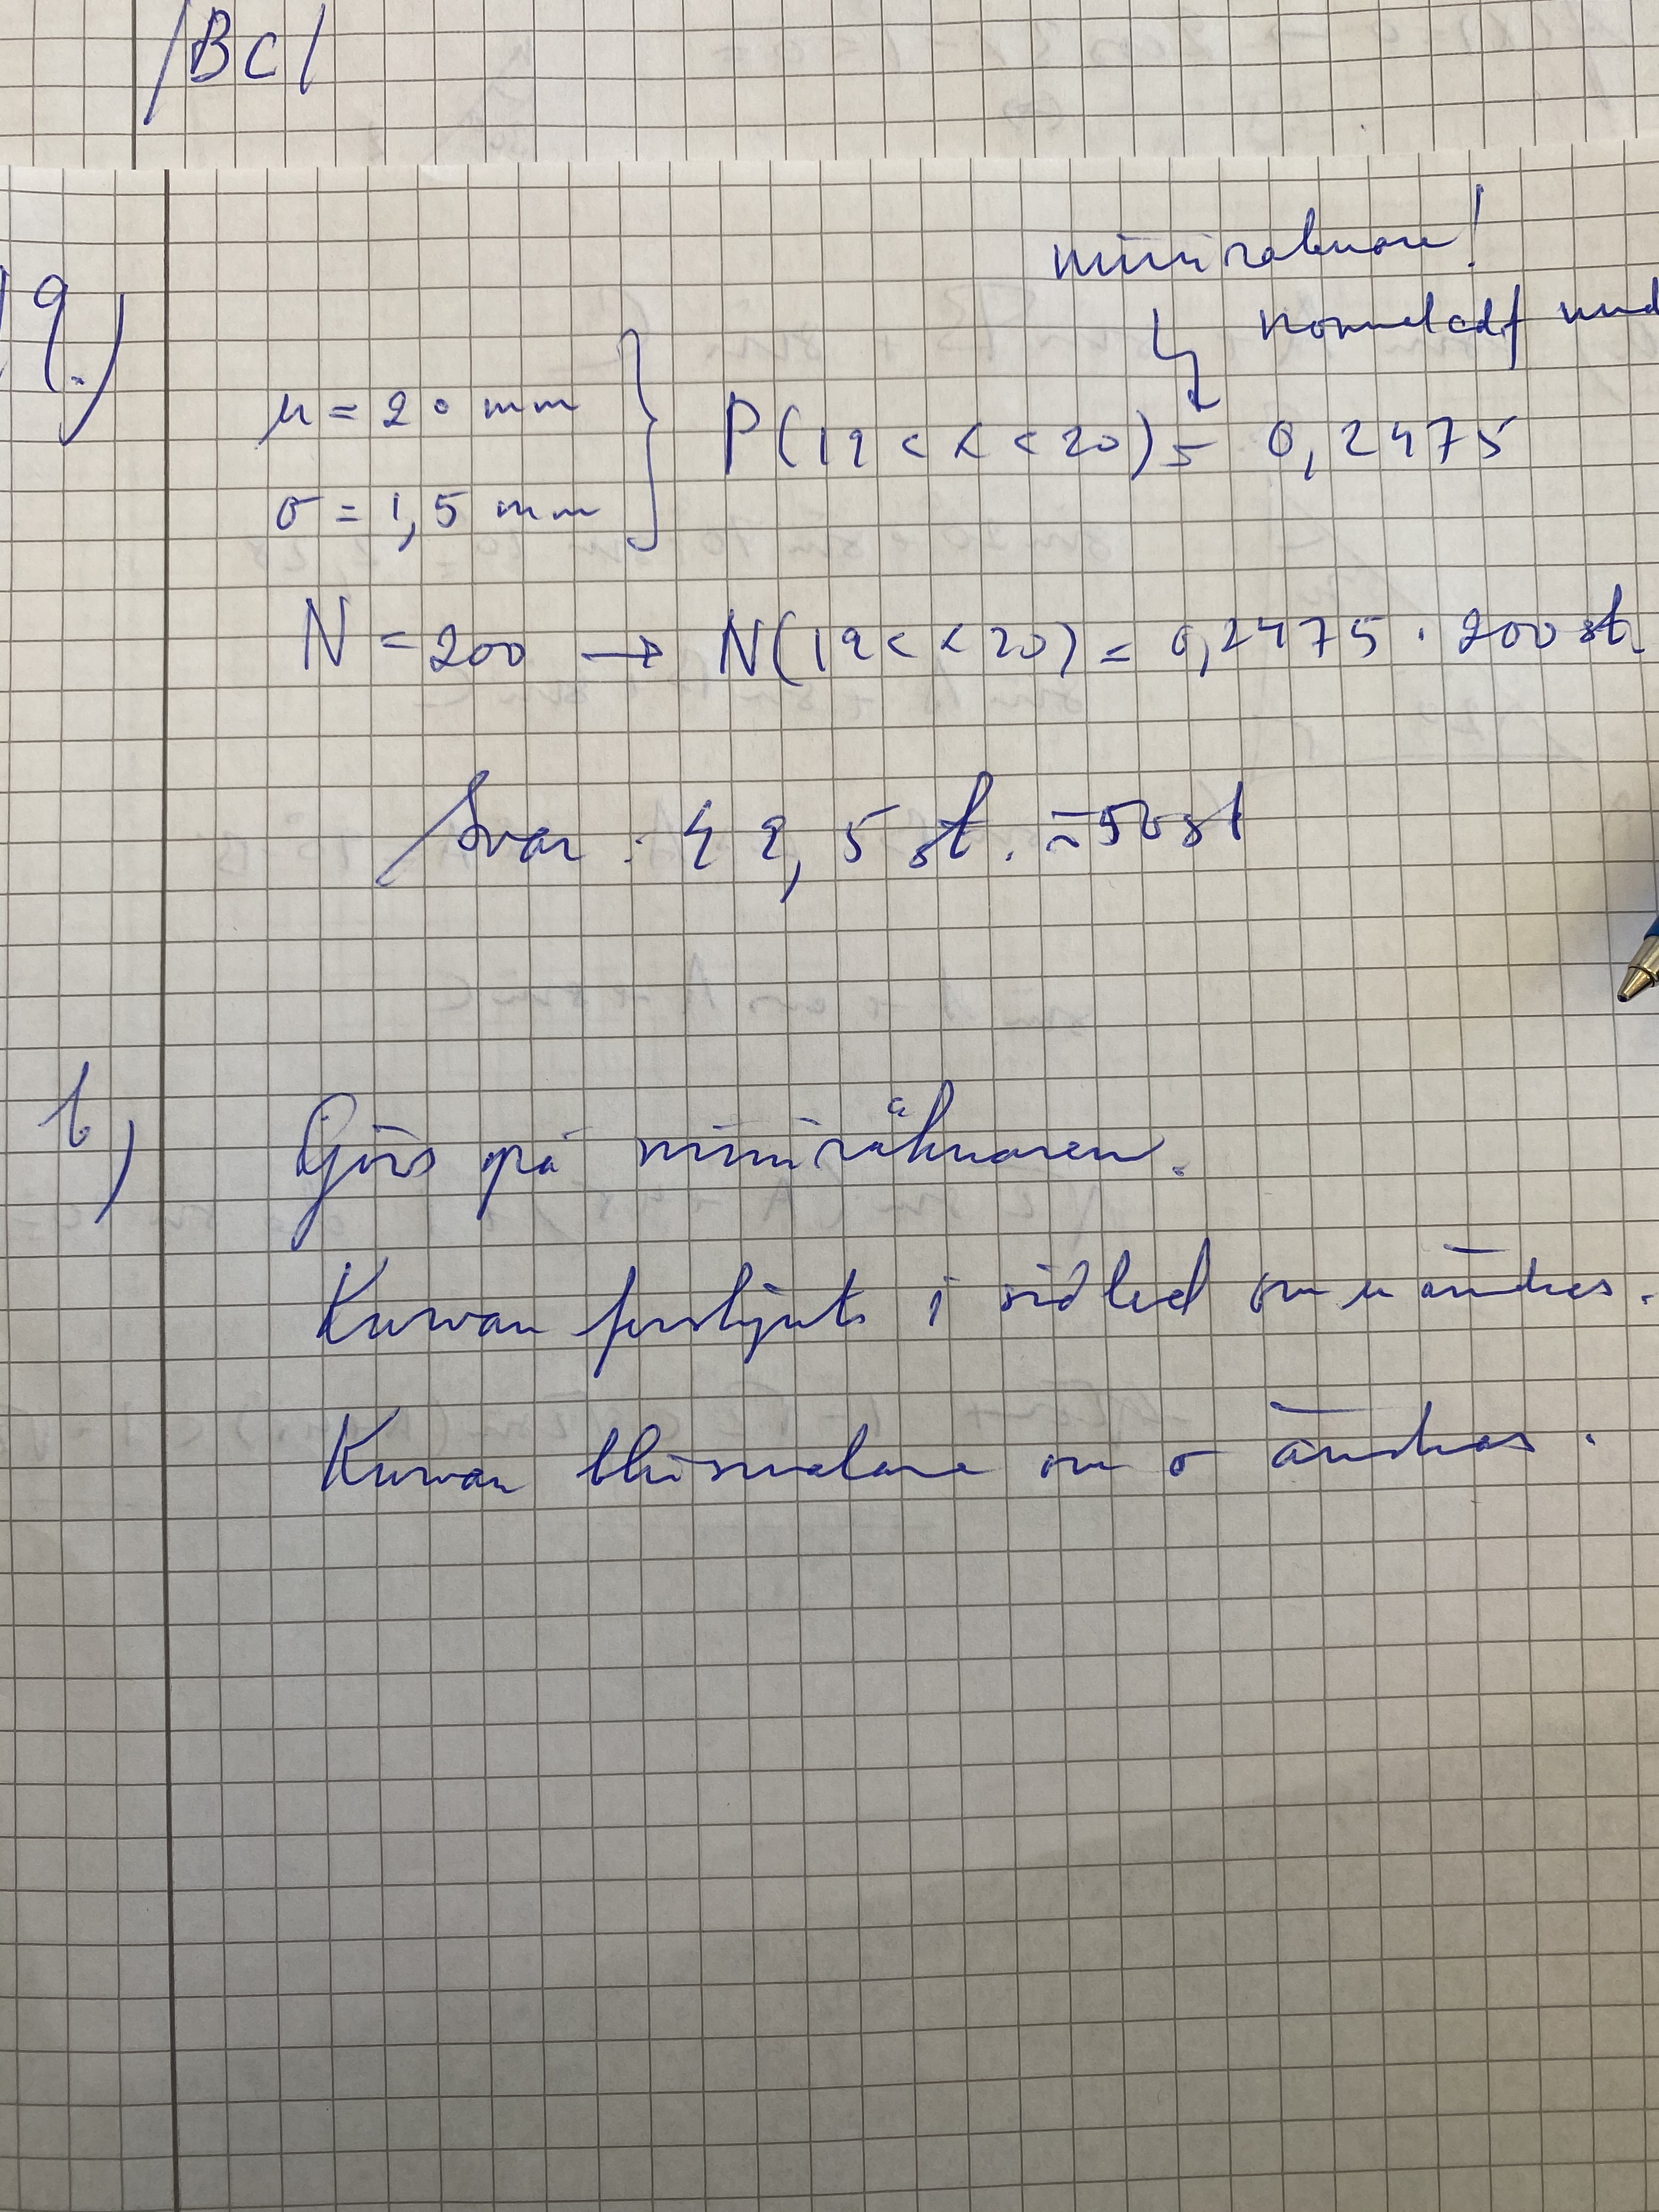 |BC|
miniräknare!
normalcdf med
19.)
μ = 20 mm
P(19 < x < 20) = 0,2475
σ = 1,5 mm
N = 200 → N(19 < < 20) = 0,2475 · 200 st.
Svar: 49,5 st. ≈ 50 st
b) Görs på miniräknaren.
Kurvan förskjuts i sidled om μ ändras.
Kurvan blir smalare om σ ändras.